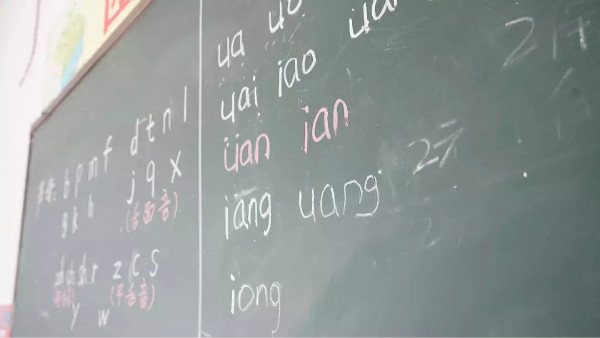 b p m f d t n l
g k h j q x
(舌面音)
zh ch sh r z c s
(平舌音)
y w
ua uo
uai iao
üan ian
iang uang
iong